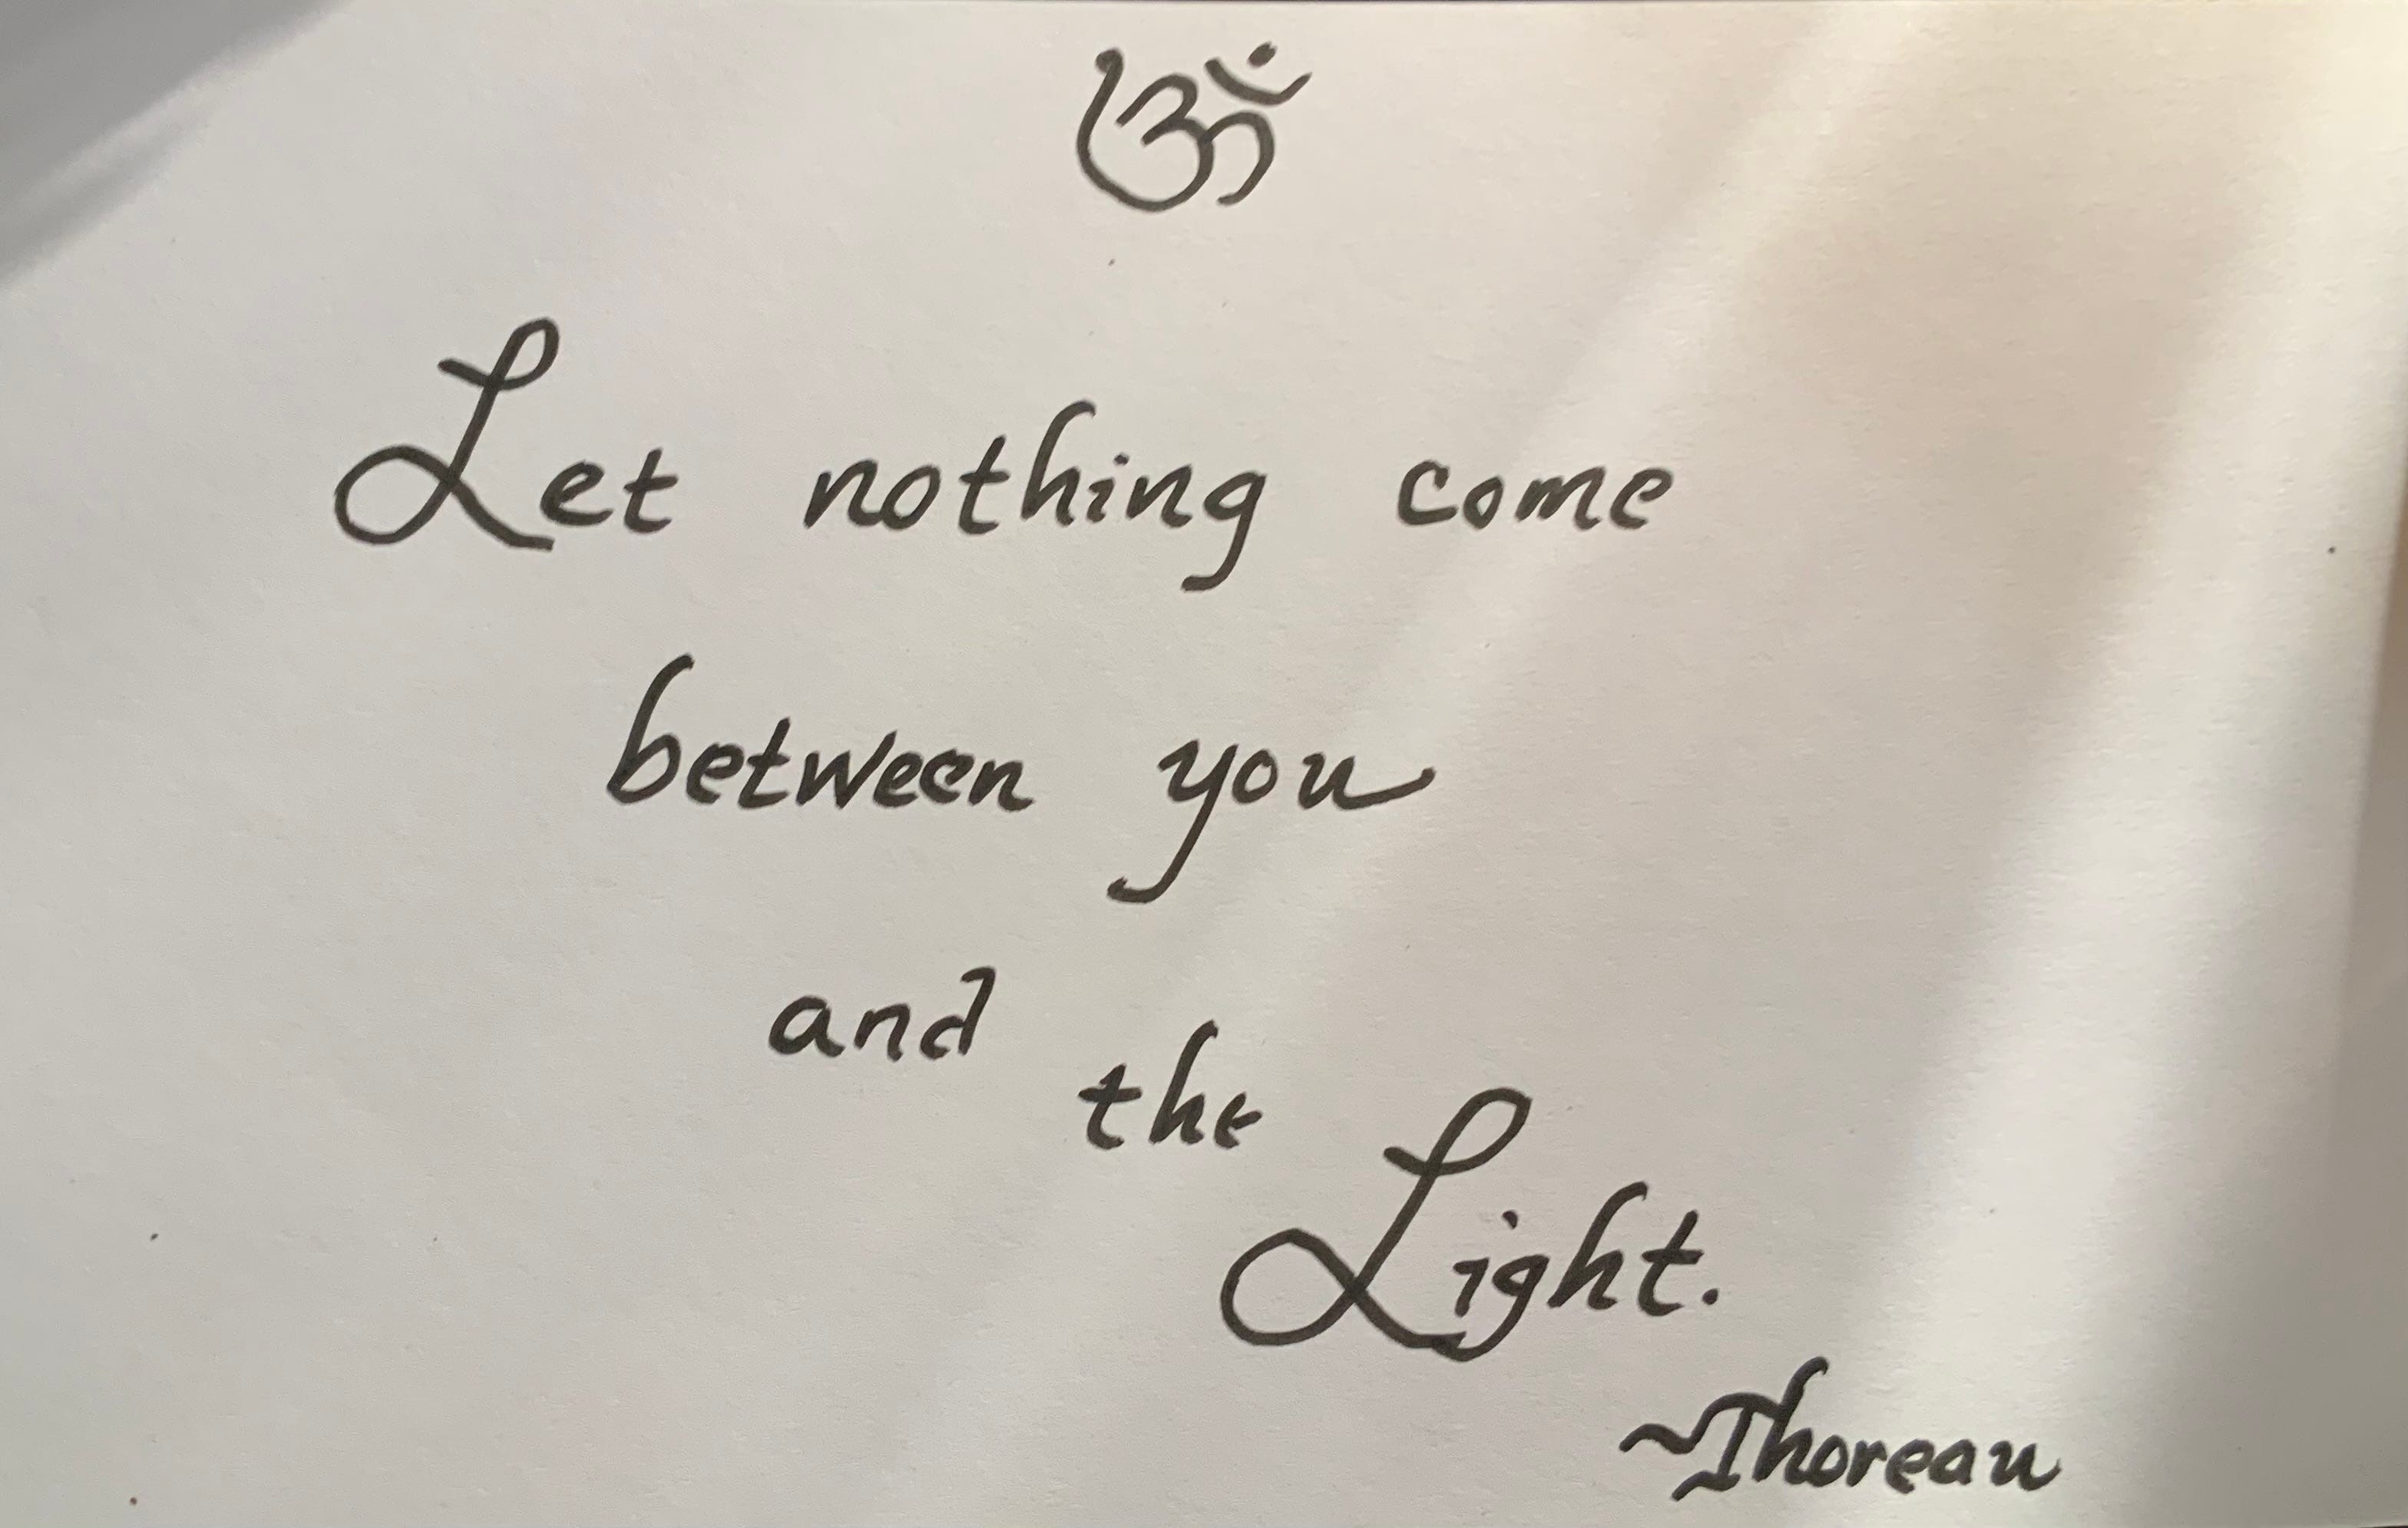 ॐ
Let nothing come
between you
and the
Light.
~Thoreau